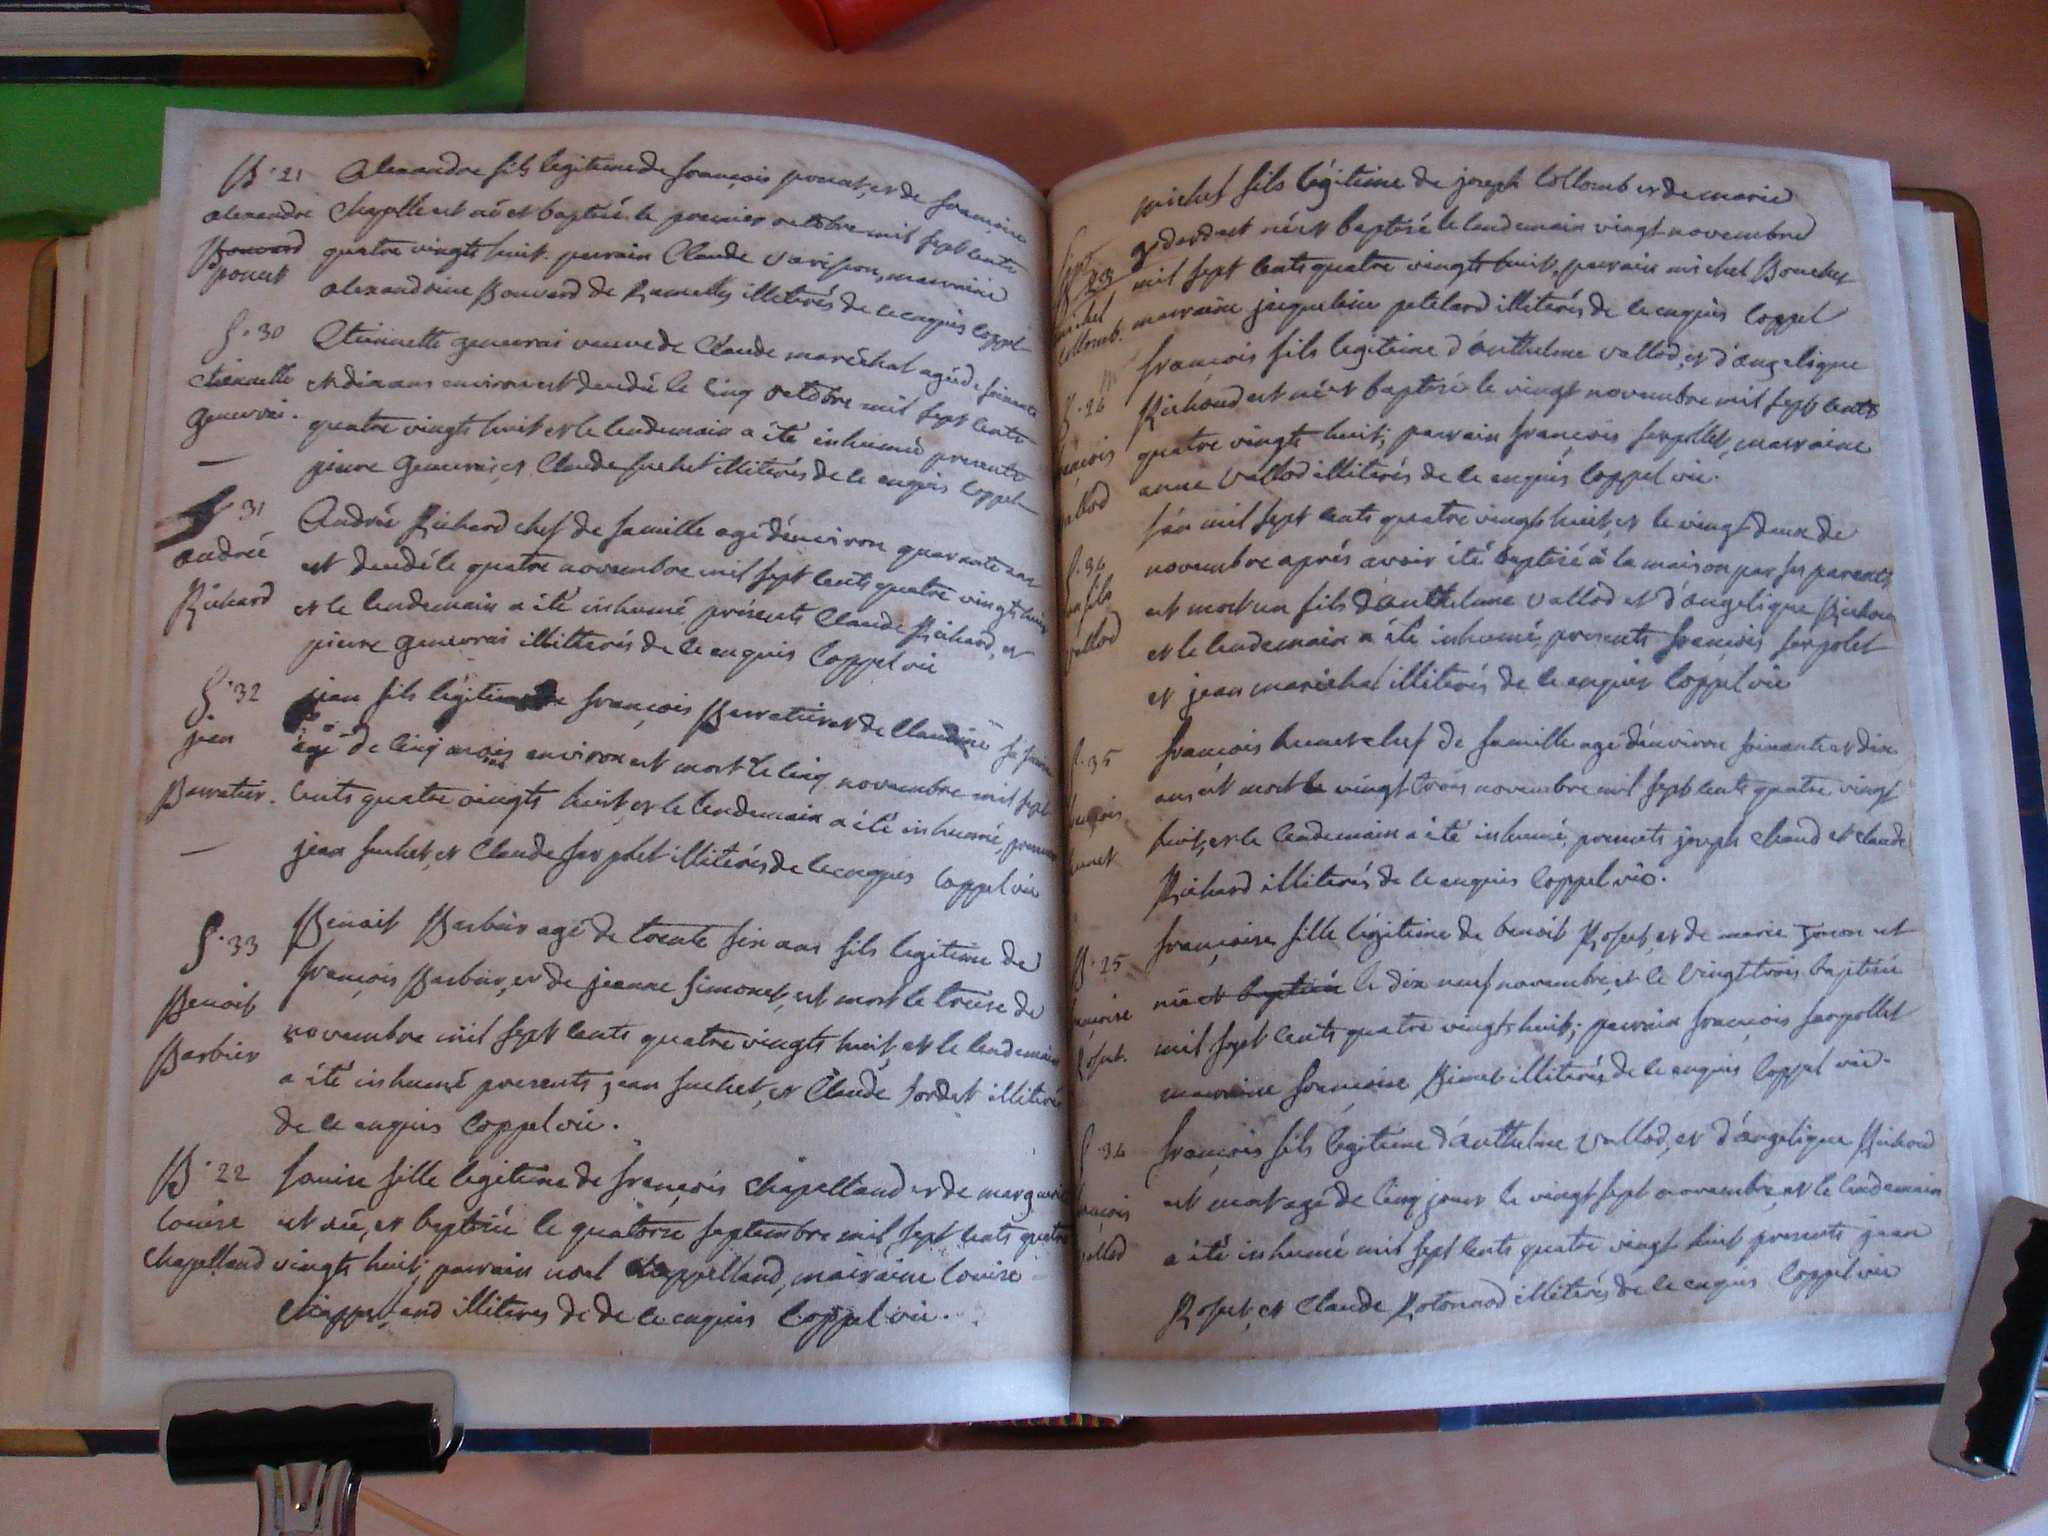 B. 21
alexandre
Bouvard
poncet
Alexandre fils legitime de françois poncet, et de françoise
Chapelle est né et baptisé le premier octobre mil sept cents
quatre vingts huit. parrain Claude marraine
alexandrine Bouvard de illiterés de ce enquis Coppel
S. 30
etiennette
genevrai.
Etiennette genevrai veuve de Claude maréchal agée de soixante
et dix ans environ est decedé le cinq octobre mil sept cents
quatre vingts huit et le lendemain a été inhumé presents
pierre genevrai, et Claude suchet illiterés de ce enquis Coppel
S. 31
andrée
Richard
Andrée Richard chef de famille agé d'environ quarante ans
est decedé le quatre novembre mil sept cents quatre vingts huit
et le lendemain a été inhumé, présents Claude Richard, et
pierre genevrai illitterés de ce enquis Coppel vic
S. 32
jean
Barratier.
jean fils légitime de françois Barratier et de Claudine
agé de cinq mois environ est mort le cinq novembre mil sept
cents quatre vingts huit, et le lendemain a été inhumé,
jean suchet, et Claude sarpolet illiterés de ce enquis Coppel vic
S. 33
Benoit
Barbier
Benoit Barbier agé de trente six ans fils legitime de
françois Barbier, et de jeanne simonet, est mort le treise de
novembre mil sept cents quatre vingts huit, et le lendemain
a été inhumé presents jean suchet, et Claude tordet illiterés
de ce enquis Coppel vic.
B. 22
louise
chapelland
louise fille legitime de françois chapelland et de
est née, et baptisée le quatorse septembre mil sept cents quatre
vingts huit; parrain noel chappelland, mairaine louise
chappelland illiteres de de ce enquis Coppel vic.
B. 23
michel
collomb.
michel fils légitime de joseph Collomb et de marie
godard est né et baptisé le lendemain vingt novembre
mil sept cents quatre vingts huit, parrain michel Bouchet
marraine jacqueline petelard illiterés de ce enquis Coppel
B. 24
françois
vallod
françois fils legitime d'anthelme vallod, et d'angelique
Richoud est né et baptisé le vingt novembre mil sept cents
quatre vingts huit; parrain françois sarpollet, marraine
anne vallod illiterés de ce enquis Coppel vic.
S. 34
un fils
vallod
l'an mil sept cents quatre vingts huit, et le vingt deux de
novembre aprés avoir été baptisé à la maison par ses parents
est mort un fils d'anthelme vallod et d'angelique Richoud
et le lendemain a été inhumé, presents françois sarpolet
et jean marechal illiterés de ce enquis Coppel vic
S. 35
françois
humet
françois humet chef de famille agé d'environ soixante et dix
ans est mort le vingt trois novembre mil sept cents quatre vingt
huit, et le lendemain a été inhumé, presents joseph chaud et claude
Richard illiterés de ce enquis Coppel vic.
B. 25
françoise
Roset.
françoise fille légitime de benoit Roset, et de marie est
née et baptisée le dix neuf novembre, et le vingt trois baptisée
mil sept cents quatre vingts huit; parrain françois sarpollet
marraine françoise illiterés de ce enquis Coppel vic.
S. 34
françois
vallod
françois fils legitime d'anthelme vallod, et d'angelique Richoud
est mort agé de cinq jours le vingt sept novembre, et le lendemain
a été inhumé mil sept cents quatre vingt huit presents jean
Roset, et Claude illiterés de ce enquis Coppel vic